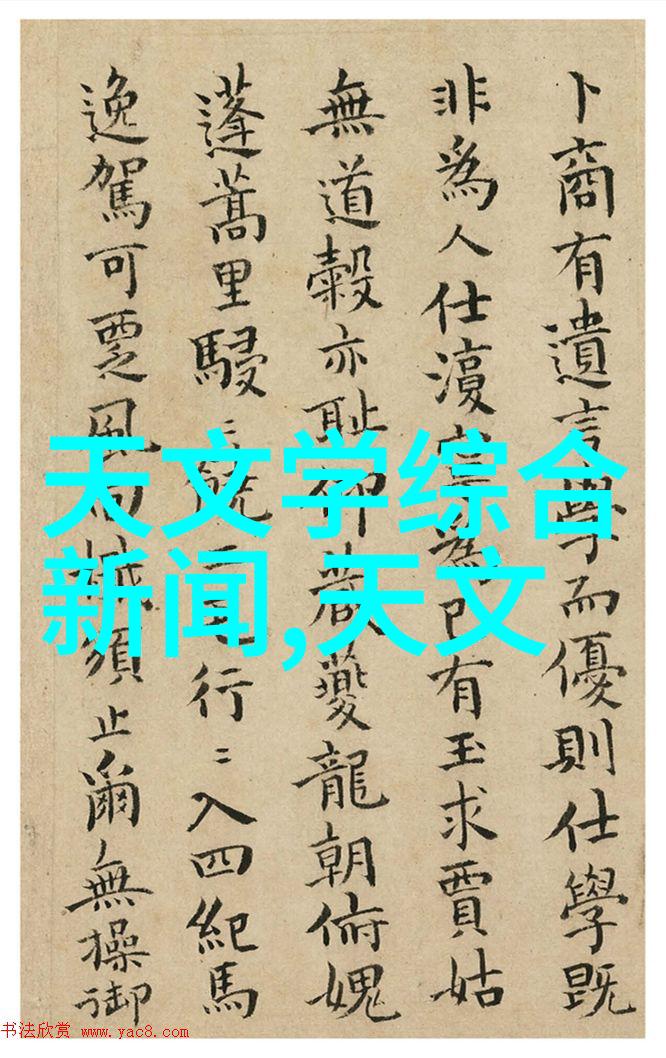 卜商有遺言學而優則仕學既
非為人仕須為己有玉求賈姑
無道穀亦恥仰慕夔龍朝俯媿
蓬蒿里駸〻行〻入四紀馬
逸駕可更風須止爾無操御
天文学综合
新闻,天文
书法欣赏 www.yac8.com